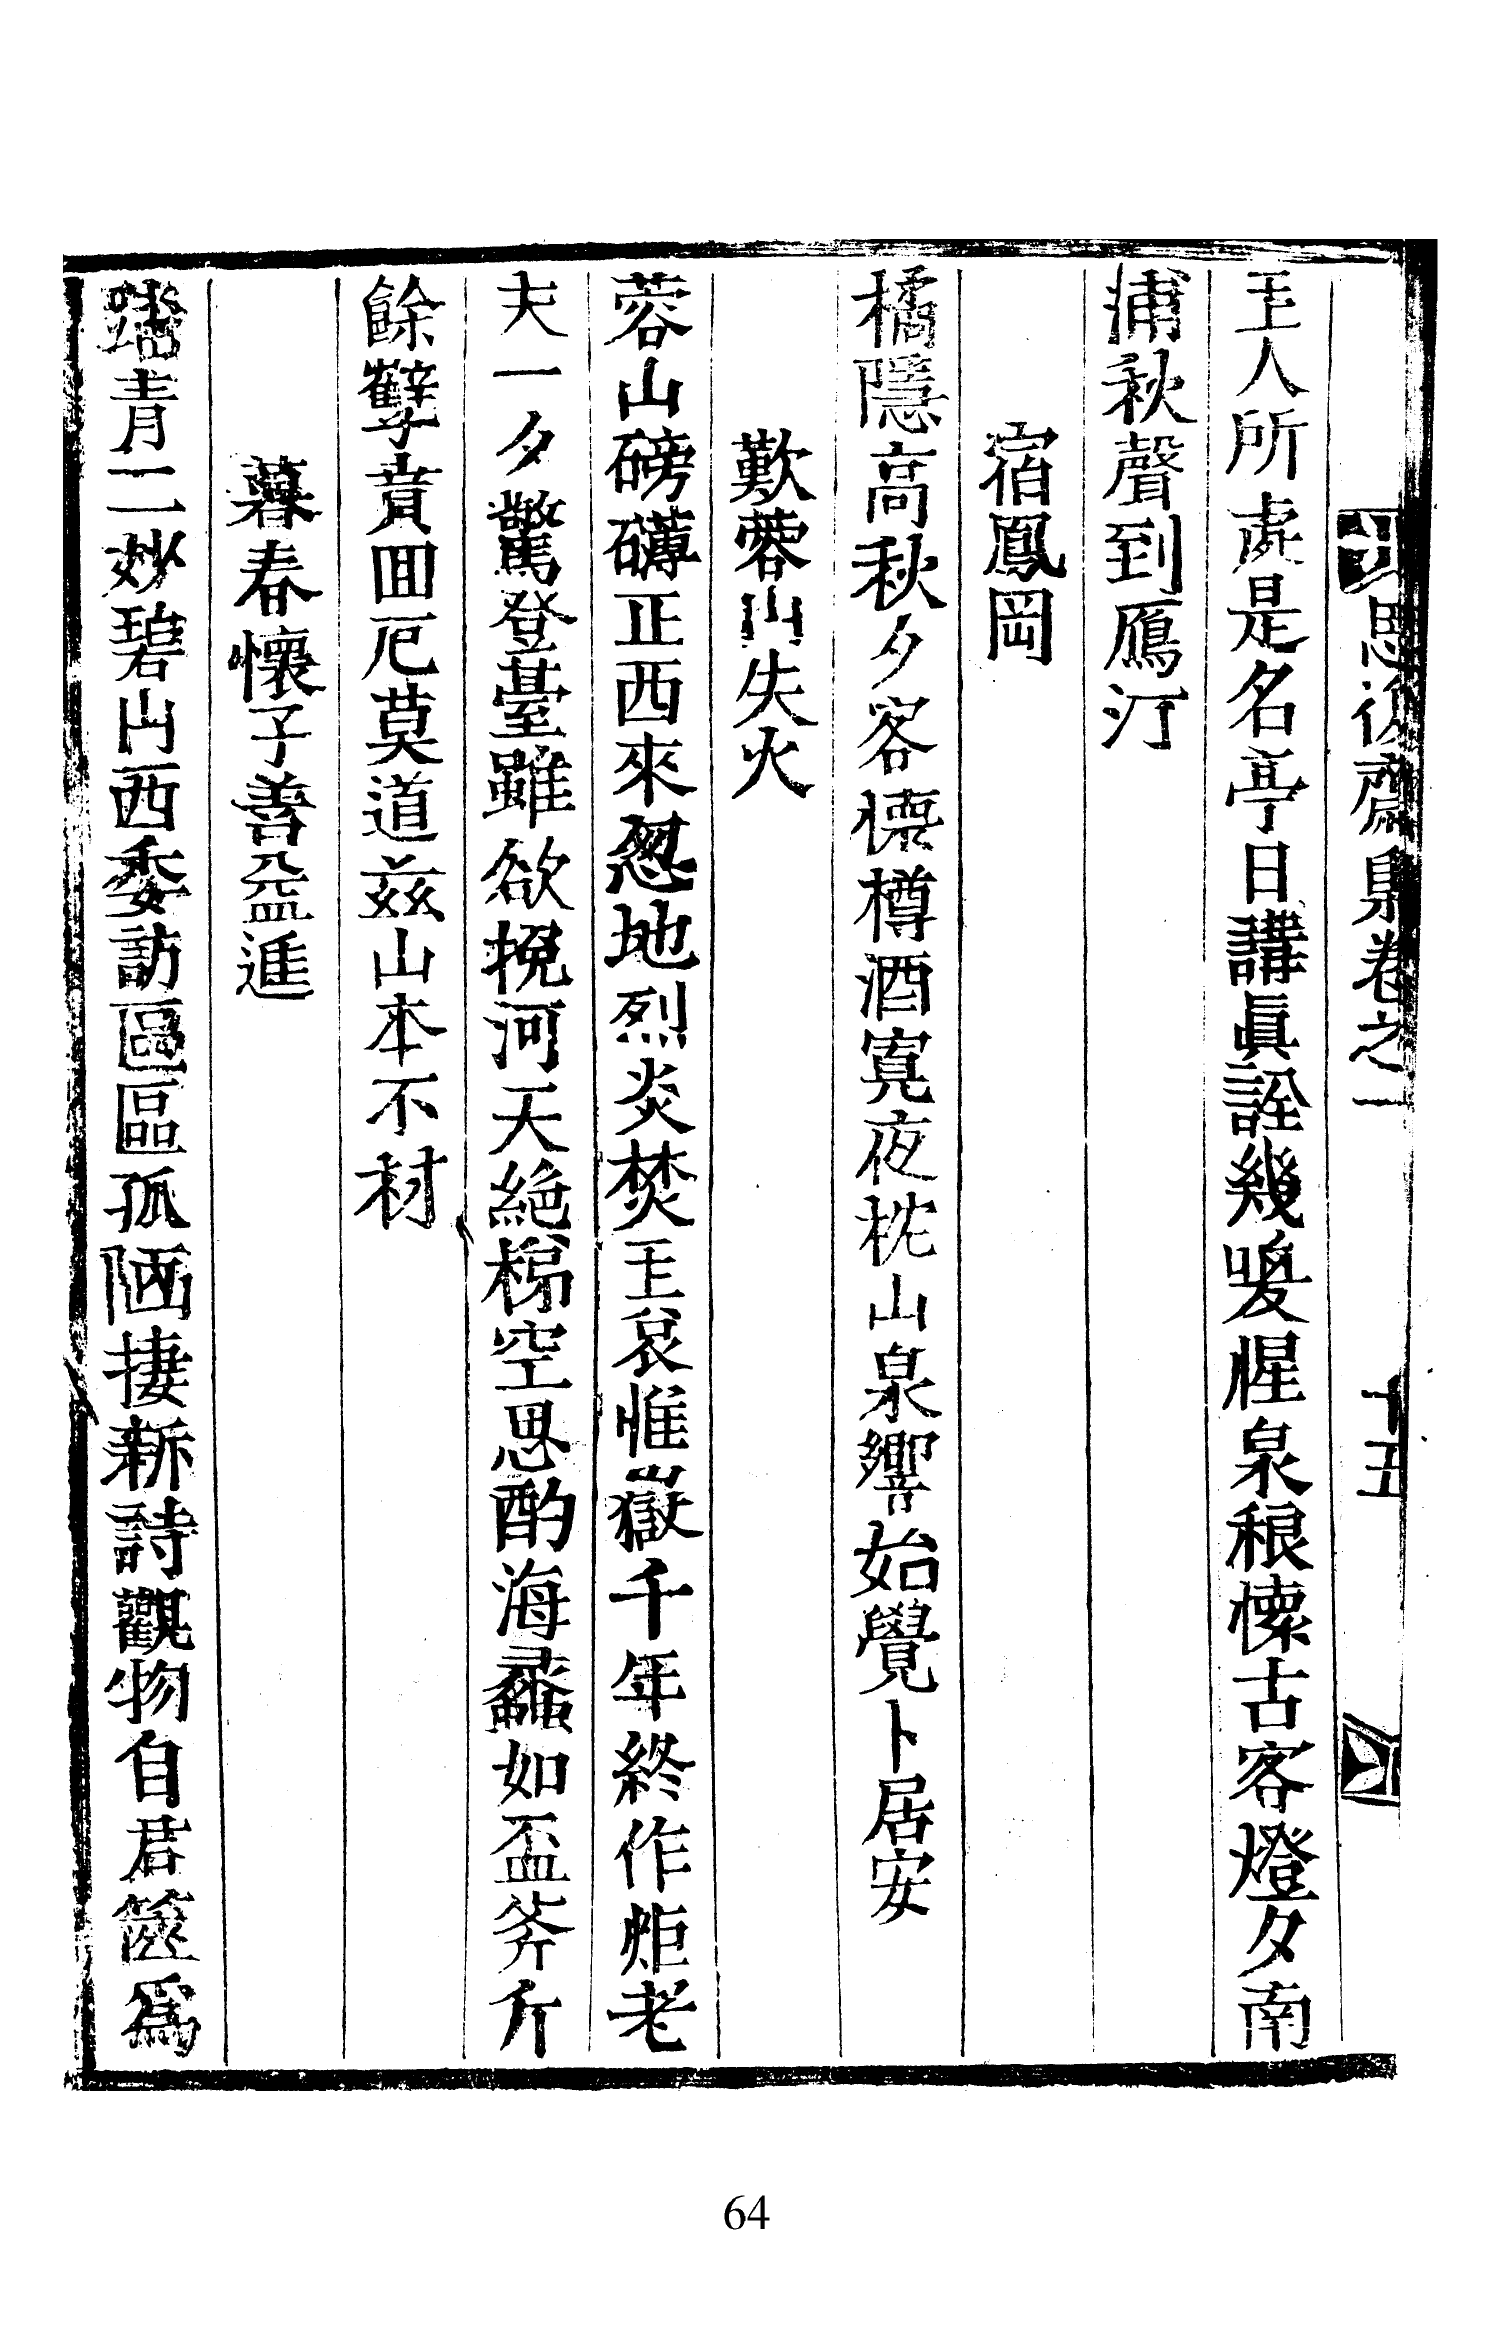 思復齋卷之一 十五
主人所處是名亭日講眞詮幾喚惺泉稂懷古客燈夕南
浦秋聲到鴈汀
宿鳳岡
橘隱高秋夕客懷樽酒寬夜枕山泉響始覺卜居安
歎蓉山失火
蓉山磅礴正西來怱地烈炎焚主哀惟嶽千年終作炬老
夫一夕驚登臺雖欲挽河天絶梯空思酌海蠡如盃斧斤
餘孽賁回厄莫道茲山本不材
暮春懷子善益進
踏青二妙碧山西委訪區區孤陋捿新詩觀物自君篋爲
64